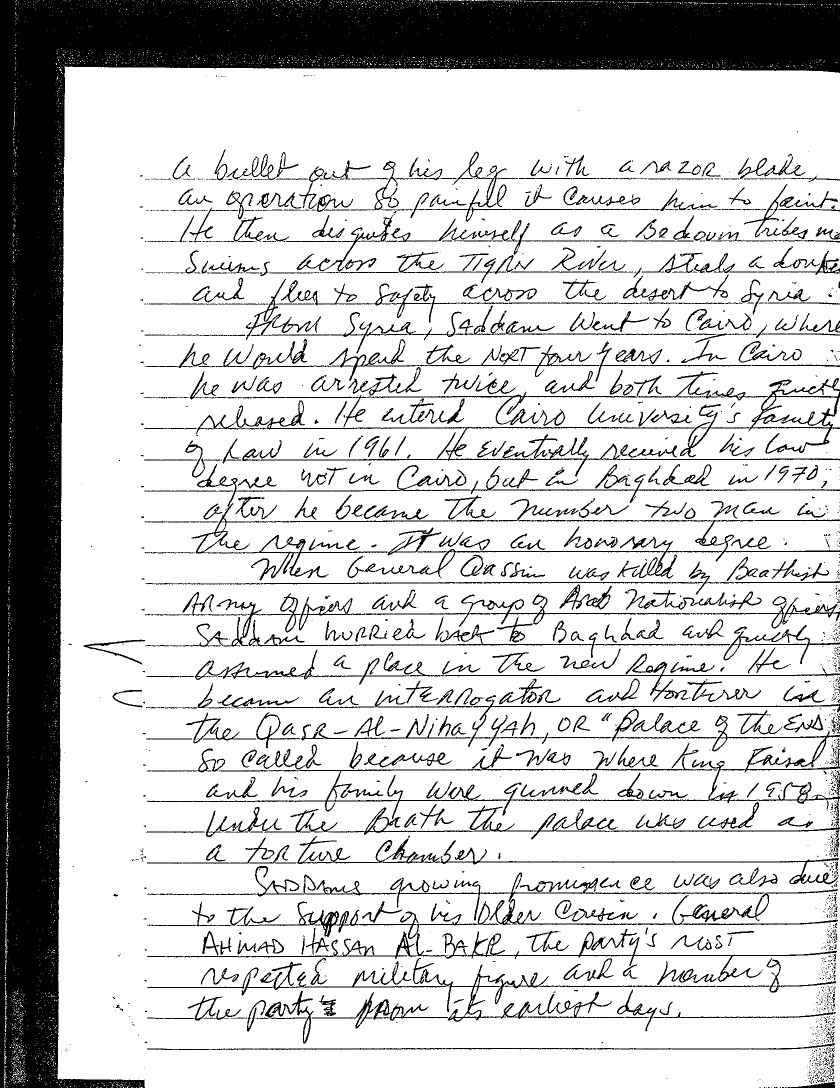 a bullet out of his leg with a razor blade,
an operation so painful it causes him to faint.
He then disguises himself as a Bedouin tribesm
Swims across the Tigris River, steals a donke
and flees to safety across the desert to Syria.
From Syria, Saddam went to Cairo, where
he would spend the next four years. In Cairo
he was arrested twice, and both times quickly
released. He entered Cairo University's faculty
of Law in 1961. He eventually received his law
degree not in Cairo, but in Baghdad in 1970,
after he became the number two man in
the regime. It was an honorary degree.
When General Qassim was killed by Baathist
Army officers and a group of Arab Nationalist officers,
Saddam hurried back to Baghdad and quickly
assumed a place in the new regime. He
became an interrogator and torturer in
the Qasr-Al-Nihayyah, or "Palace of the End,
so called because it was where King Faisal
and his family were gunned down in 1958.
Under the Baath the palace was used as
a torture chamber.
Saddams growing prominence was also due
to the support of his older cousin. General
AHMAD HASSAN AL-BAKR, the party's most
respected military figure and a member of
the party from its earliest days.